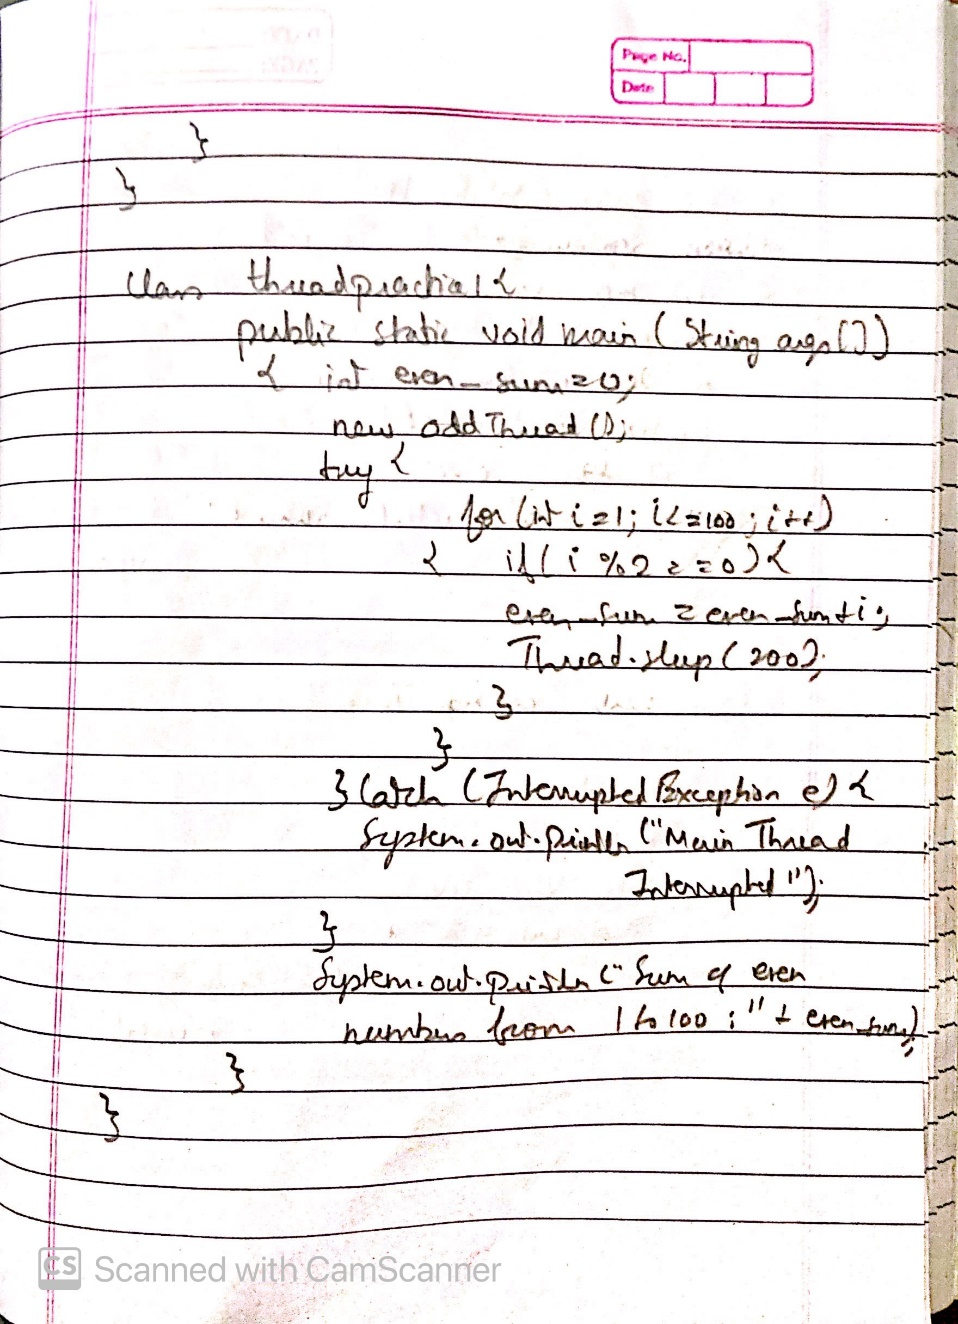 Page No.
Date
}
}
class threadpractial {
public static void main ( String args [])
{ int even_sum = 0;
new oddThread ();
try {
for (int i=1; i<=100 ; i++)
{ if ( i %2 ==0) {
even_sum = even_sum + i ;
Thread.sleep( 200);
}
}
} catch (Interrupted Exception e) {
System.out.println ("Main Thread
Interrupted ");
}
System.out.println (" Sum of even
numbers from 1 to 100 : " + even_sum);
}
}
CS Scanned with CamScanner